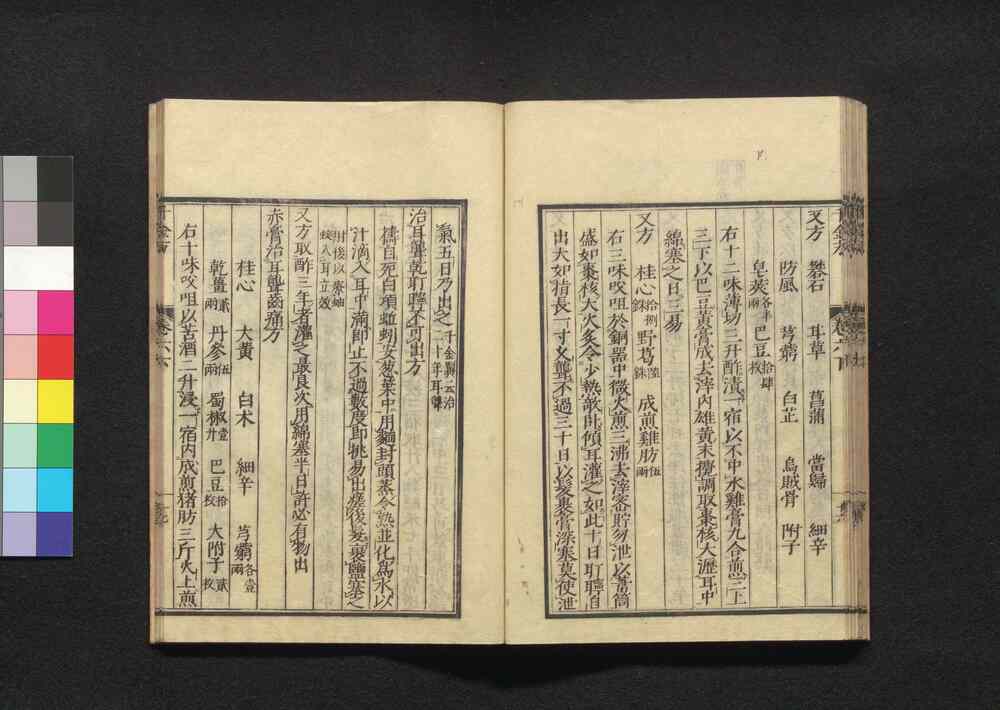 又方 礬石 耳草 菖蒲 當歸 細辛
防風 芎藭 白芷 烏賊骨 附子
皂莢各半兩 巴豆拾肆枚
右十二味薄切三升酢漬一宿以不中水雞膏九合煎三上
三下以巴豆黄膏成去滓内雄黄末攪調取棗核大瀝耳中
綿塞之日三易
又方 桂心拾捌銖 野葛陸銖 成煎雞肪伍兩
右三味㕮咀於銅器中微火煎三沸去滓密貯勿泄以葦筒
盛如棗核大火炙令少熱欹臥傾耳灌之如此十日耵聹自
出大如指長一寸久聾不過三十日以髮裹膏深塞莫使泄
氣五日乃出之千金翼云治二十年耳聾
治耳聾乾耵聹不可出方
擣自死白項蚯蚓安葱葉中用麵封頭蒸令熟並化爲水以
汁滴入耳中滿即止不過數度即挑易出瘥後髮裹鹽塞之
肘後以療蚰蜒入耳立效
又方取酢三年者灌之最良次用綿塞半日許必有物出
赤膏治耳聾齒痛方
桂心 大黄 白术 細辛 芎藭各壹兩
乾薑貳兩 丹參伍兩 蜀椒壹升 巴豆拾枚 大附子貳枚
右十味㕮咀以苦酒二升浸一宿内成煎猪肪三斤火上煎